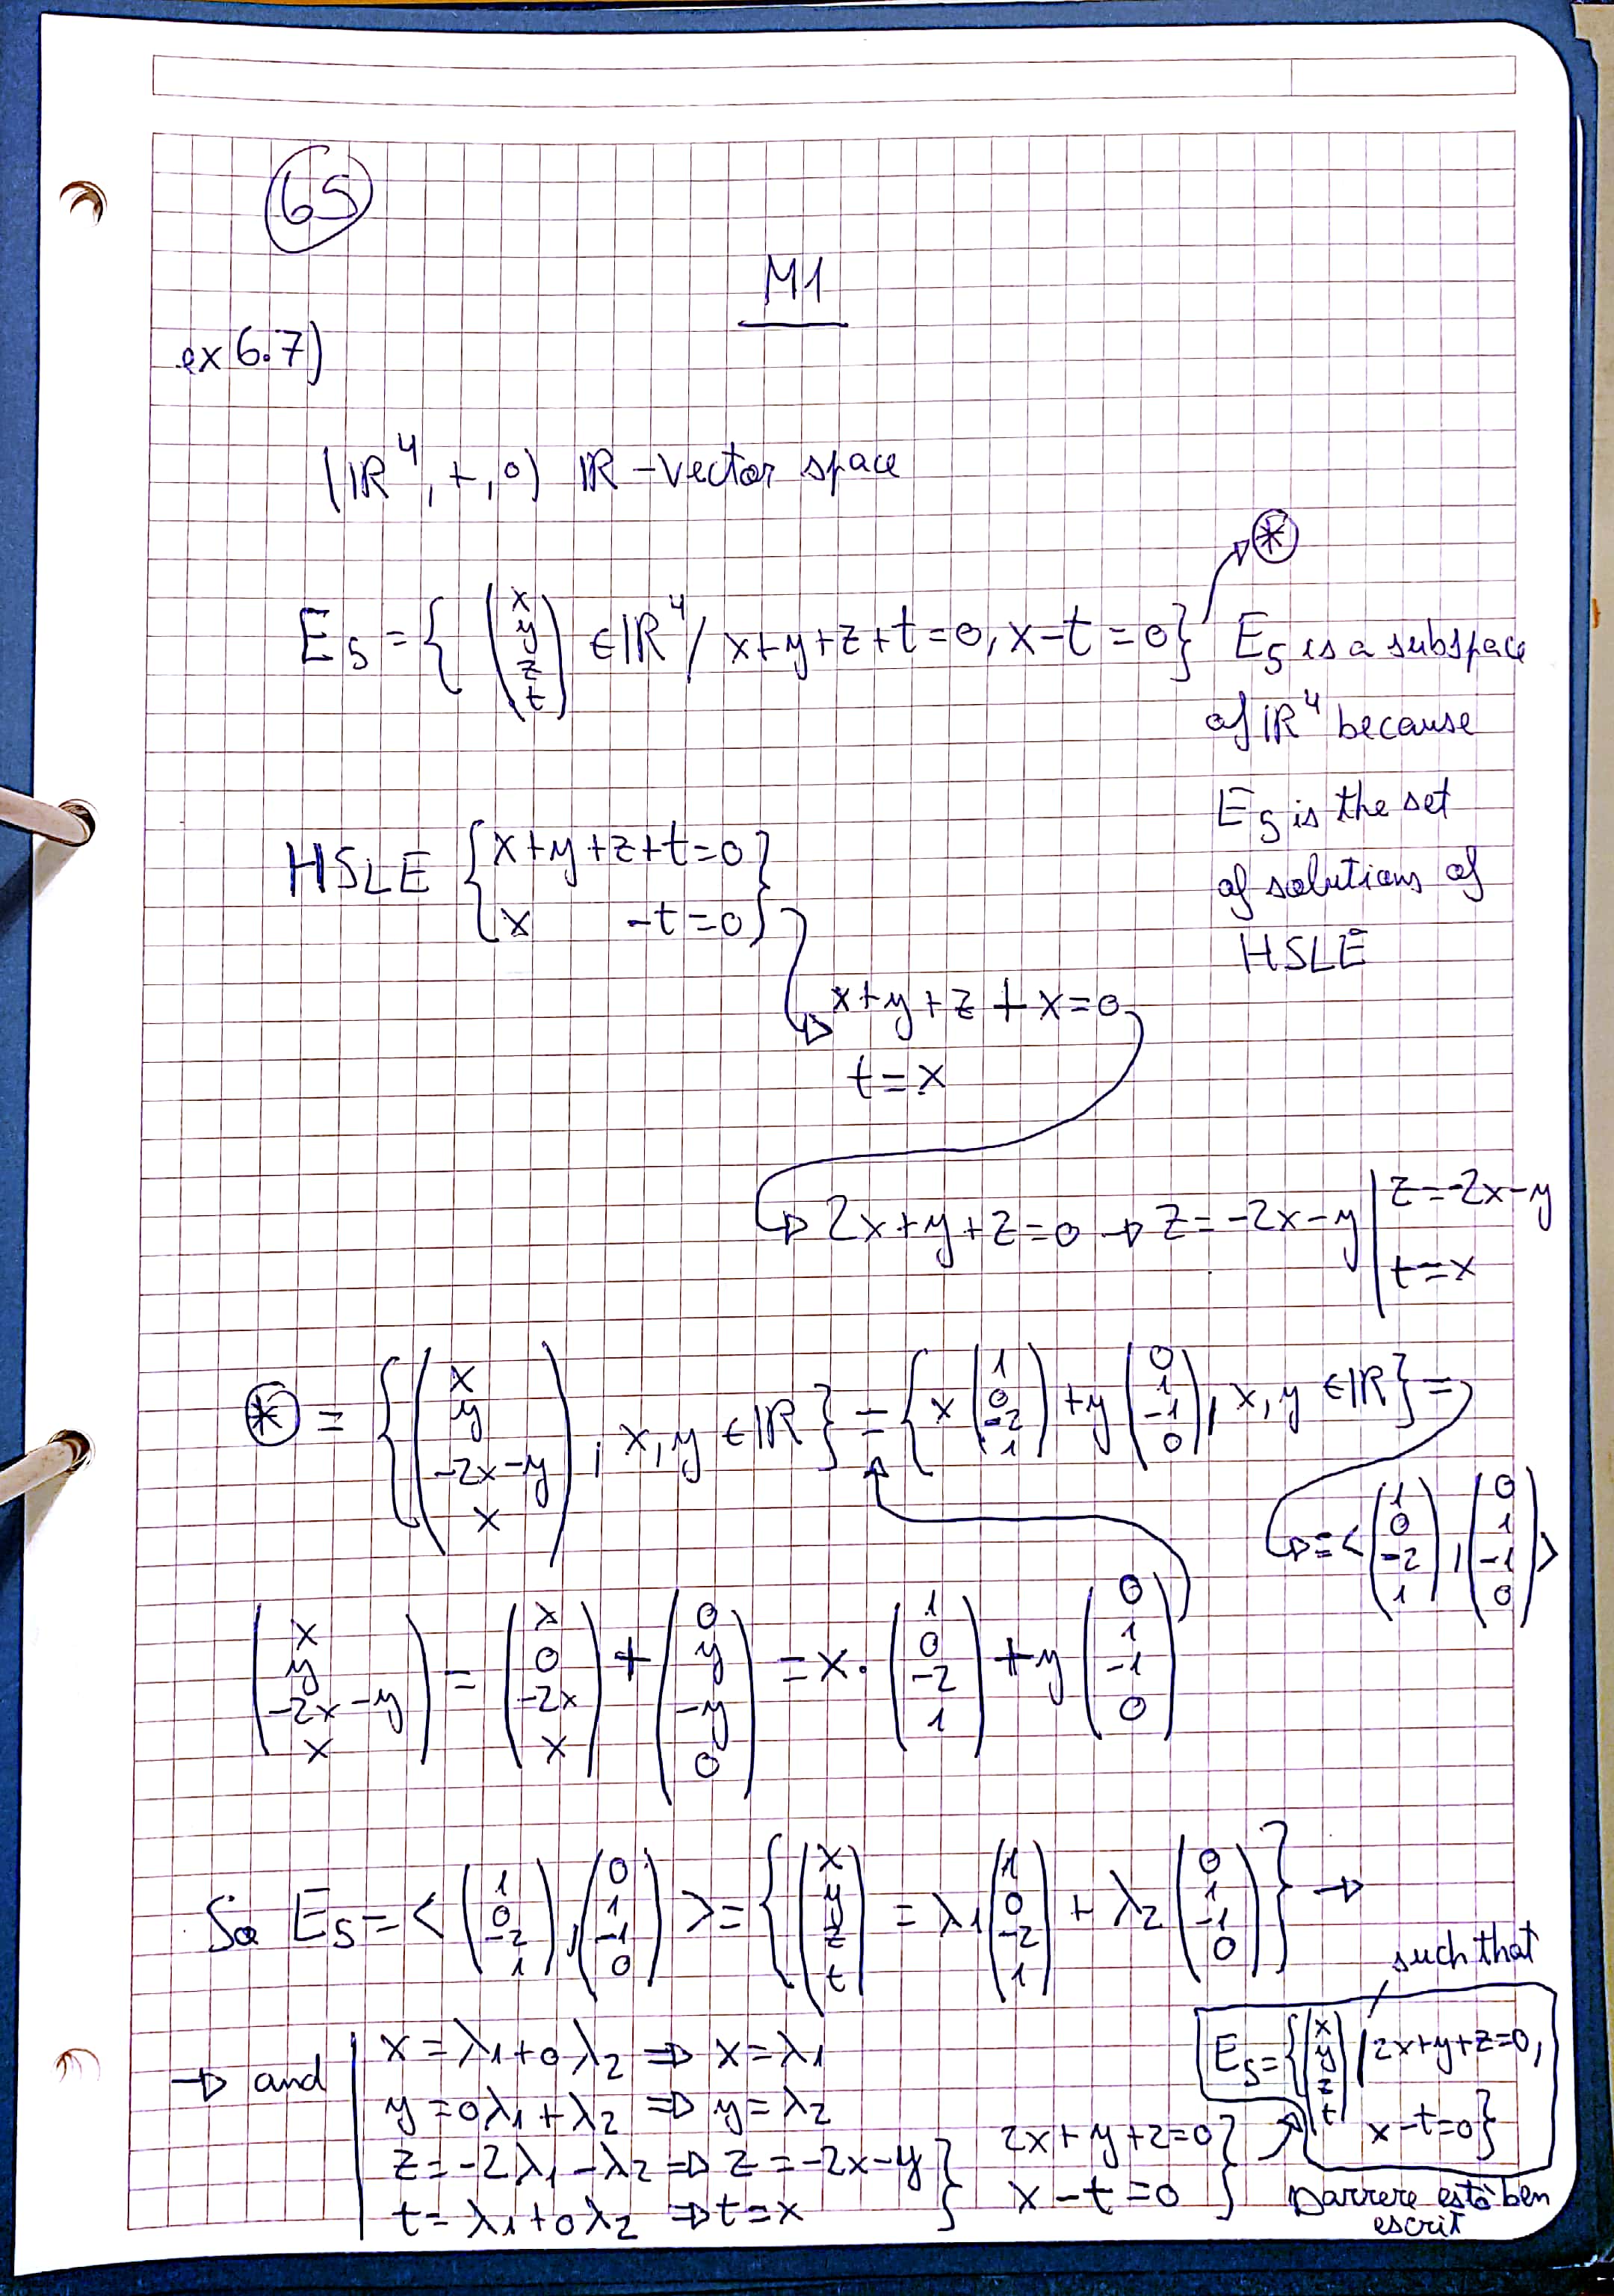 65
M1
ex 6.7)
(IR⁴, +, ∘) IR-vector space
E₅ = { (x y z t) ∈ IR⁴ / x+y+z+t=0, x-t=0 } → ⊛
E₅ is a subspace
of IR⁴ because
E₅ is the set
of solutions of
HSLE
HSLE { x+y+z+t=0
x -t=0 }
x+y+z+x=0
t=x
2x+y+z=0 → z=-2x-y | z=-2x-y
t=x
⊛ = { (x y -2x-y x), x,y ∈ IR } = { x (1 0 -2 1) + y (0 1 -1 0), x,y ∈ IR } =
= < (1 0 -2 1), (0 1 -1 0) >
(x y -2x-y x) = (x 0 -2x x) + (0 y -y 0) = x · (1 0 -2 1) + y (0 1 -1 0)
So E₅ = < (1 0 -2 1), (0 1 -1 0) > = { (x y z t) = λ1 (1 0 -2 1) + λ2 (0 1 -1 0) } →
such that
→ and | x = λ1+0λ2 ⇒ x=λ1
y = 0λ1+λ2 ⇒ y=λ2
z = -2λ1-λ2 ⇒ z=-2x-y
t = λ1+0λ2 ⇒ t=x
} 2x+y+z=0
x-t=0 }
E₅ = { (x y z t) | 2x+y+z=0,
x-t=0 }
Darrere està ben
escrit